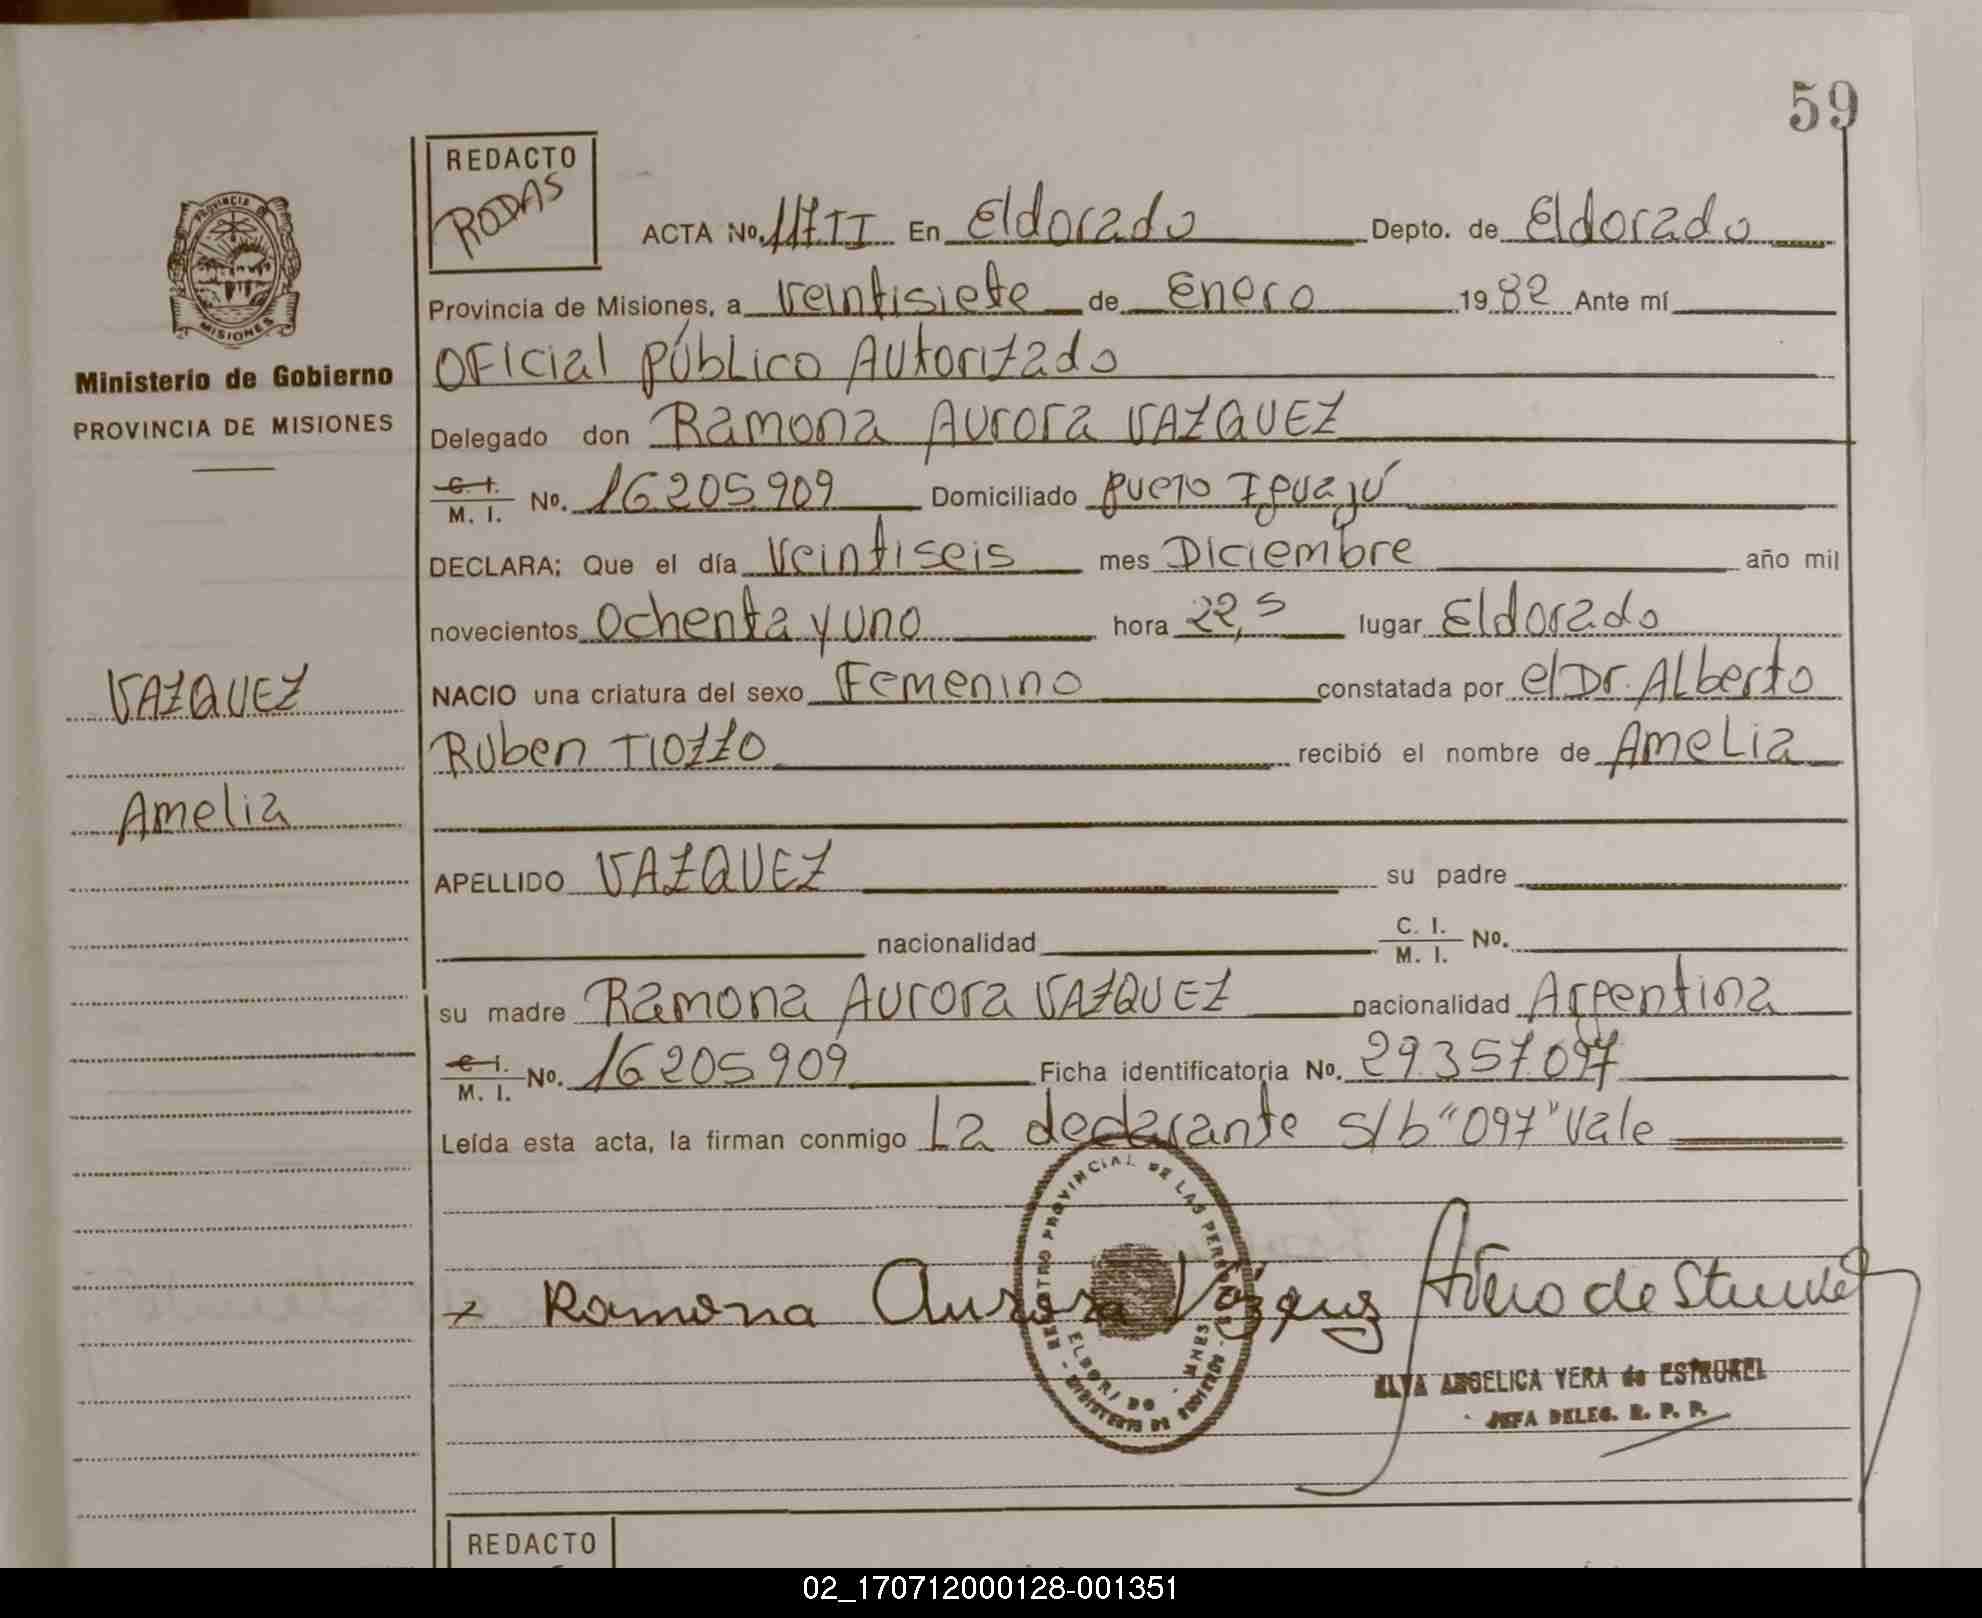 59
REDACTO
RODAS
PROVINCIA DE
MISIONES
Ministerio de Gobierno
PROVINCIA DE MISIONES
VAZQUEZ
Amelia
ACTA No. 117 II En Eldorado Depto. de Eldorado
Provincia de Misiones, a veintisiete de Enero 1982 Ante mí
Oficial Público Autorizado
Delegado don Ramona Aurora VAZQUEZ
C. I. / M. I. No. 16205909 Domiciliado
DECLARA; Que el día veintiseis mes Diciembre año mil
novecientos Ochenta y uno hora 22,5 lugar Eldorado
NACIO una criatura del sexo Femenino constatada por el Dr. Alberto
Ruben TIOZZO recibió el nombre de Amelia
APELLIDO VAZQUEZ su padre
nacionalidad C. I. / M. I. No.
su madre Ramona Aurora VAZQUEZ nacionalidad Argentina
C. I. / M. I. No. 16205909 Ficha identificatoria No. 29.357.097
Leída esta acta, la firman conmigo La declarante s/b "097" Vale
REGISTRO PROVINCIAL DE LAS PERSONAS
MINISTERIO DE GOBIERNO
ELDORADO - MNES
x Ramona Aurora Vázquez
ELVA ANGELICA VERA de ESTRUREL
JEFA DELEG. R. P. P.
REDACTO
02_170712000128-001351